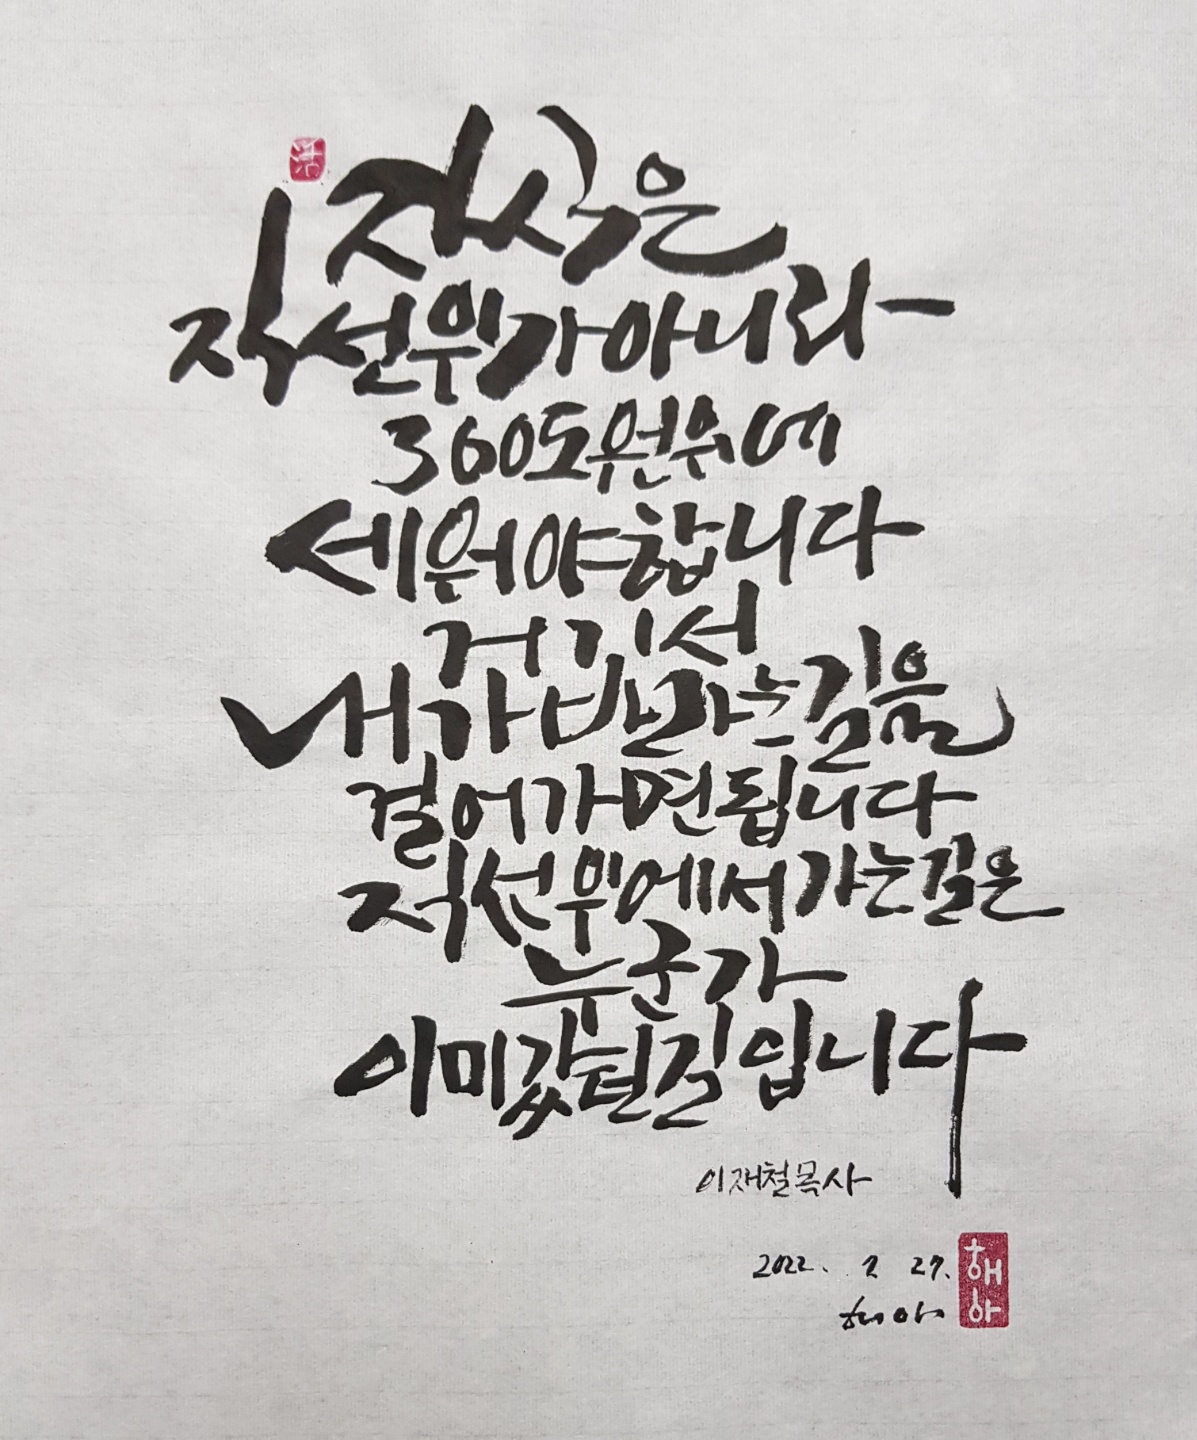 자식은
직선위가 아니라
360도 원 위에
세워야 합니다
거기서
내가 바라는 길을
걸어가면 됩니다
직선위에서 가는 길은
누군가
이미 갔던 길입니다
이재철 목사
2022. 2 27.
해아
해아